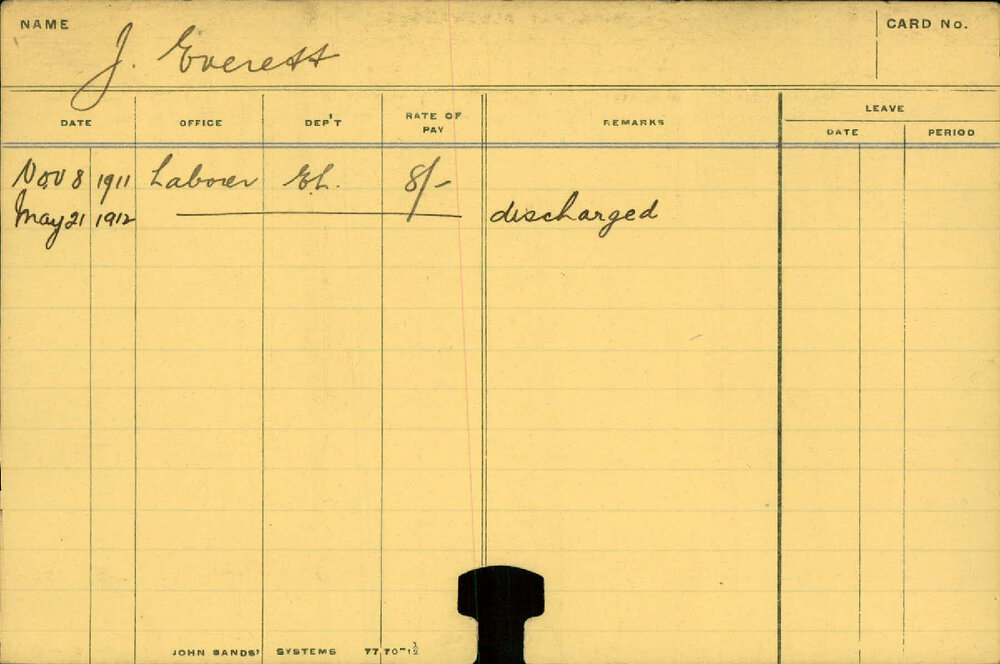 NAME J. Everett CARD No.
DATE OFFICE DEP'T RATE OF PAY REMARKS LEAVE
DATE PERIOD
Nov 8 1911 Laborer E.L. 8/-
May 21 1912 discharged
JOHN SANDS' SYSTEMS